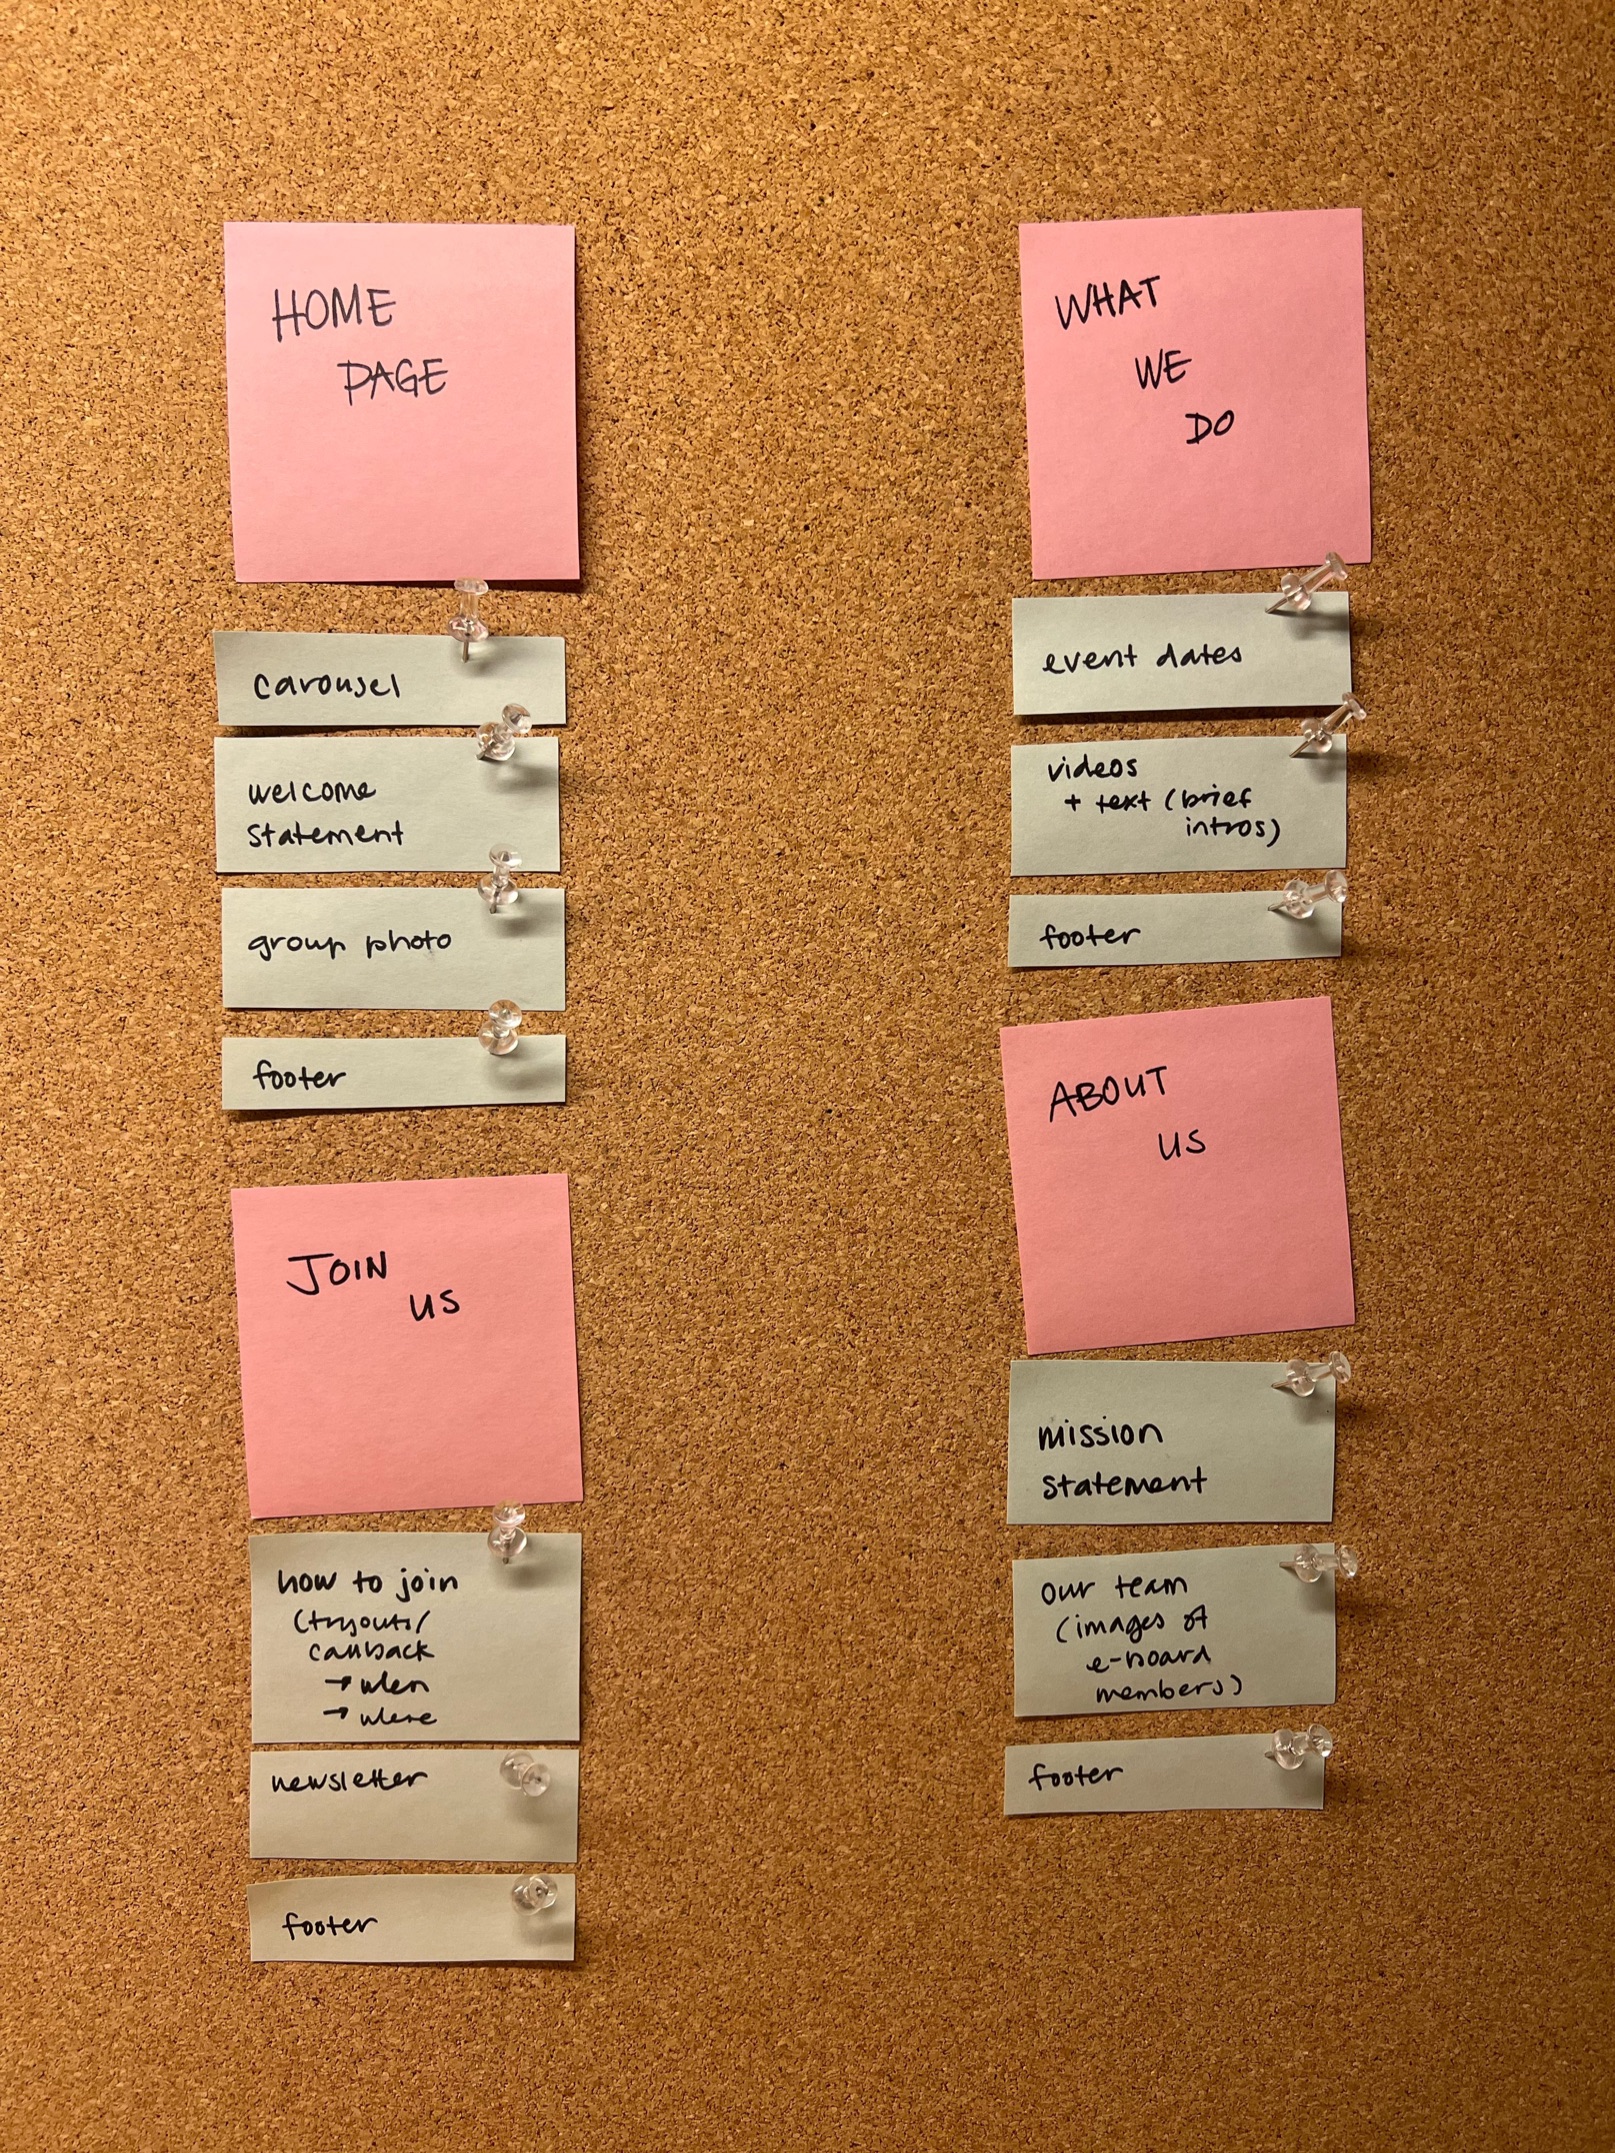 HOME
PAGE
carousel
welcome
statement
group photo
footer
JOIN
US
how to join
(tryouts/
callback
→ when
→ where
newsletter
footer
WHAT
WE
DO
event dates
videos
+ text (brief
intros)
footer
ABOUT
US
mission
statement
our team
(images of
e-board
members)
footer